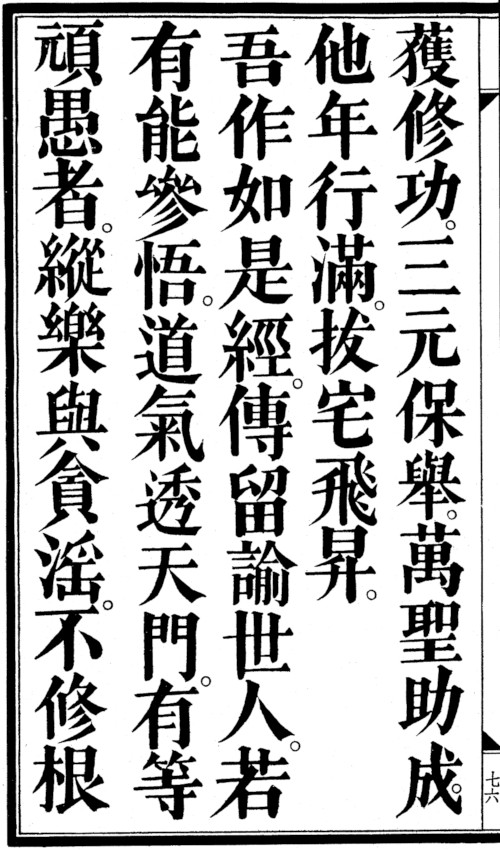 獲修功。三元保舉。萬聖助成。
他年行滿。拔宅飛昇。
吾作如是經。傳留諭世人。若
有能參悟。道氣透天門。有等
頑愚者。縱樂與貪滛。不修根
七六